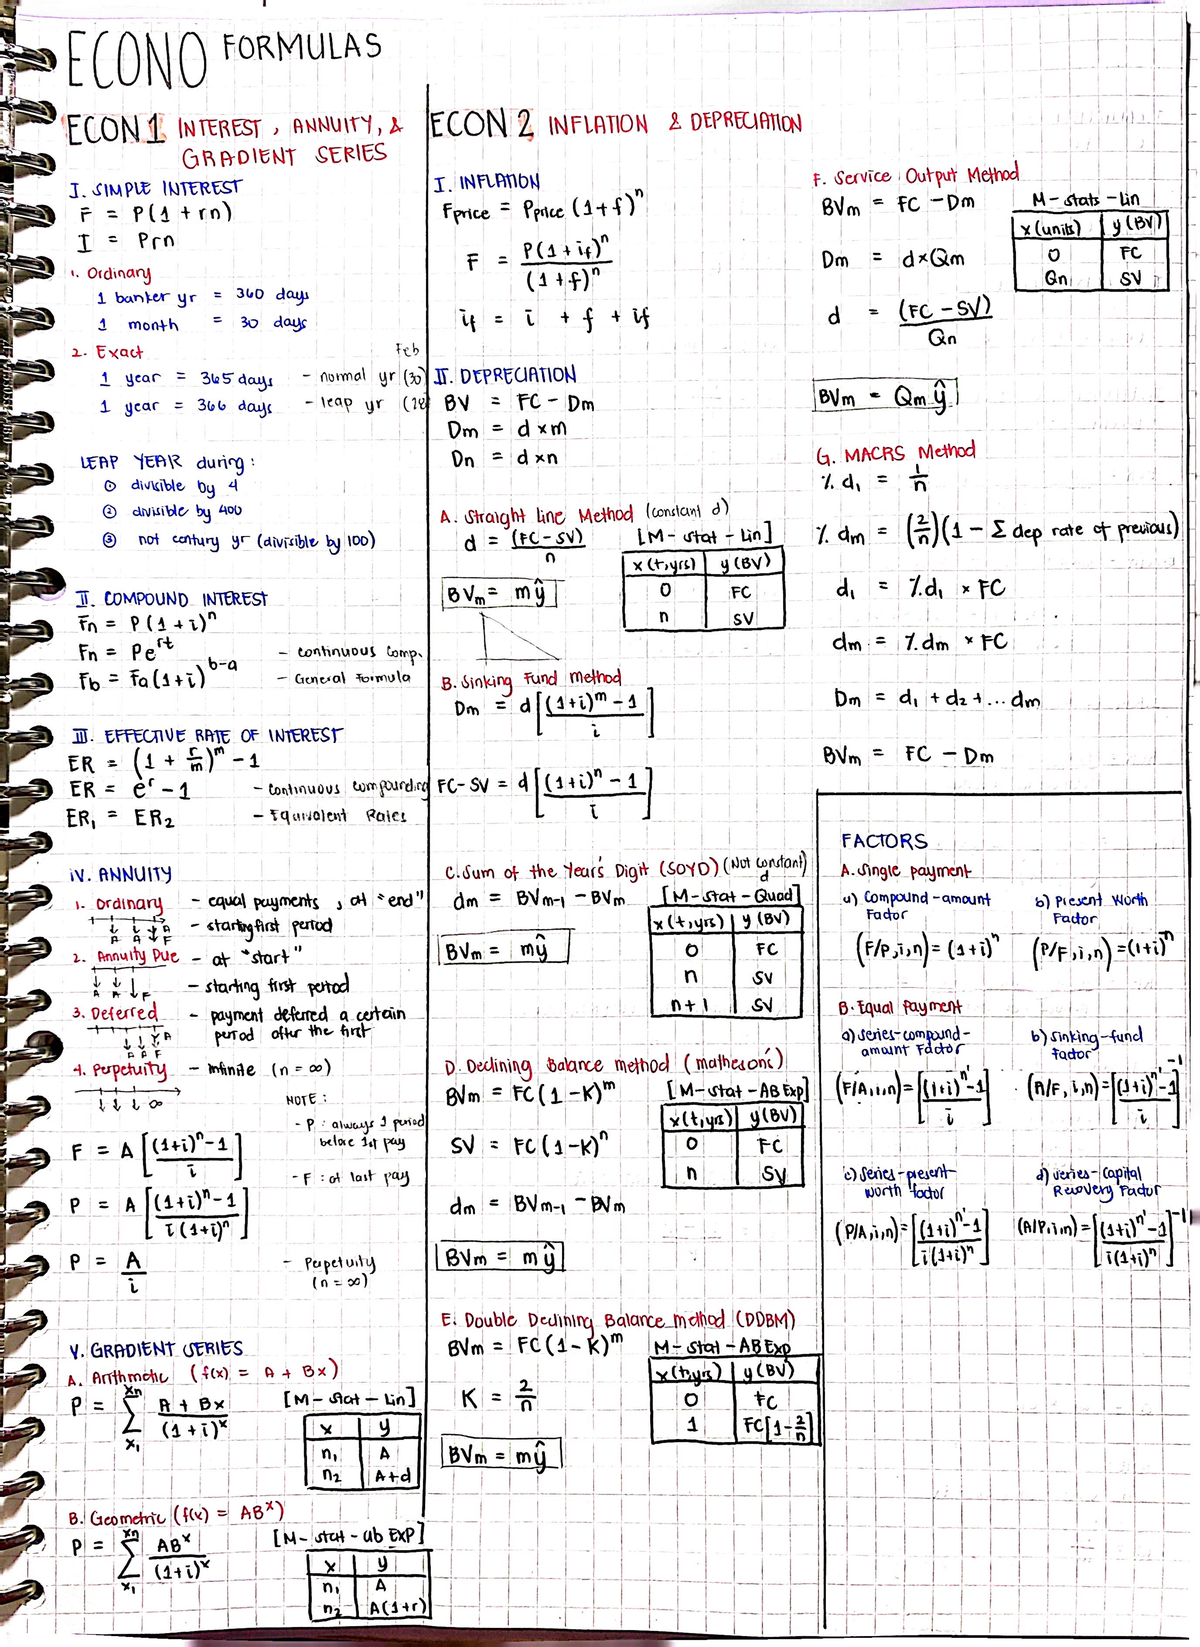 ECONO FORMULAS
ECON 1 INTEREST, ANNUITY, &
GRADIENT SERIES
I. SIMPLE INTEREST
F = P(1 + rn)
I = Prn
1. Ordinary
1 banker yr = 360 days
1 month = 30 days
2. Exact
Feb
1 year = 365 days - normal yr (30)
1 year = 366 days - leap yr (28
LEAP YEAR during:
① divisible by 4
② divisible by 400
③ not century yr (divisible by 100)
II. COMPOUND INTEREST
Fn = P(1 + i)^n
Fn = Pe^rt - continuous Comp.
Fb = Fa(1+i)^b-a - General Formula
III. EFFECTIVE RATE OF INTEREST
ER = (1 + r/m)^m - 1
ER = e^r - 1 - continuous compounding
ER₁ = ER₂ - Equivalent Rates
IV. ANNUITY
1. Ordinary - equal payments, at "end"
- starting first period
A A F A
2. Annuity Due - at "start"
- starting first period
A A F
3. Deferred - payment deferred a certain
period after the first
A A F A
4. Perpetuity - infinite (n = ∞)
∞
NOTE:
- P: always 1 period
before 1st pay
- F: at last pay
F = A [((1+i)^n - 1)/i]
P = A [((1+i)^n - 1)/(i(1+i)^n)]
P = A/i - Perpetuity
(n = ∞)
V. GRADIENT SERIES
A. Arithmetic (f(x) = A + Bx)
P = Σ (x₁ to xn) (A + Bx)/(1 + i)^x [M - stat - Lin]
x y
n₁ A
n₂ A+d
B. Geometric (f(x) = AB^x)
P = Σ (x₁ to xn) AB^x/(1+i)^x [M - stat - ab EXP]
x y
n₁ A
n₂ A(1+r)
ECON 2 INFLATION & DEPRECIATION
I. INFLATION
Fprice = Pprice (1+f)^n
F = P(1 + if)^n/(1 + f)^n
if = i + f + if
II. DEPRECIATION
BV = FC - Dm
Dm = d x m
Dn = d x n
A. Straight line Method (constant d)
d = (FC - SV)/n [M - stat - Lin]
x (t, yrs) y (BV)
0 FC
n SV
BVm = mŷ
B. Sinking Fund method
Dm = d [((1+i)^m - 1)/i]
FC - SV = d [((1+i)^n - 1)/i]
C. Sum of the Year's Digit (SOYD) (Not constant)
d
dm = BVm-1 - BVm [M - stat - Quad]
x (t, yrs) y (BV)
0 FC
n SV
n+1 SV
BVm = mŷ
D. Declining Balance method (matheson's)
BVm = FC(1 - K)^m [M - stat - AB Exp]
x (t, yrs) y (BV)
0 FC
n SV
SV = FC(1 - K)^n
dm = BVm-1 - BVm
BVm = mŷ
E. Double Declining Balance method (DDBM)
BVm = FC(1 - K)^m M - stat - AB Exp
x (t, yrs) y (BV)
0 FC
1 FC[1 - 2/n]
K = 2/n
BVm = mŷ
F. Service Output Method
BVm = FC - Dm M - stats - Lin
x (units) y (BV)
0 FC
Qn SV
Dm = d x Qm
d = (FC - SV)/Qn
BVm = Qm ŷ
G. MACRS Method
% d₁ = 1/n
% dm = (2/n)(1 - Σ dep rate of previous)
d₁ = % d₁ x FC
dm = % dm x FC
Dm = d₁ + d₂ + ... dm
BVm = FC - Dm
FACTORS
A. Single payment
a) Compound-amount
Factor
(F/P,i,n) = (1+i)^n
b) Present Worth
Factor
(P/F,i,n) = (1+i)^n
B. Equal Payment
a) series-compound-
amount Factor
(F/A,i,n) = [((1+i)^n - 1)/i]
b) sinking-fund
factor
(A/F,i,n) = [((1+i)^n - 1)/i]^-1
c) Series-present
worth factor
(P/A,i,n) = [((1+i)^n - 1)/(i(1+i)^n)]
d) series-Capital
Recovery Factor
(A/P,i,n) = [((1+i)^n - 1)/(i(1+i)^n)]^-1